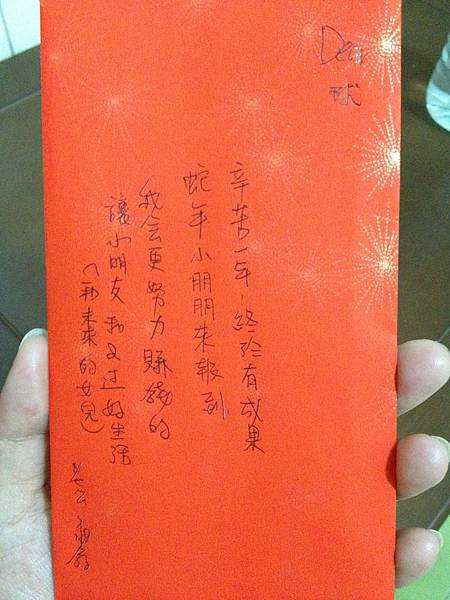 Dear
球
辛苦一年,終於有成果
蛇年小朋朋來報到
我会更努力賺錢的
讓小朋友 过好生活
(未來的女兒)
老公